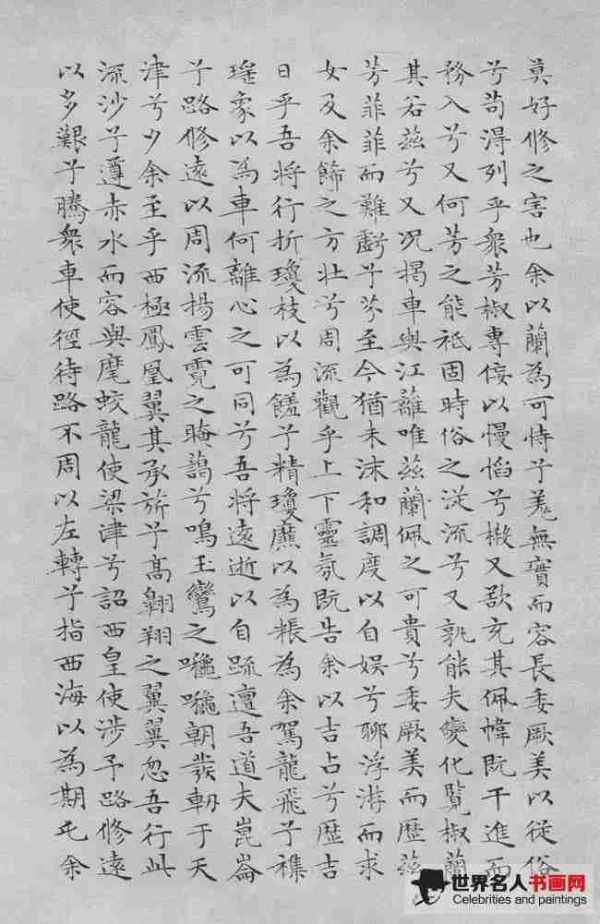 莫好修之害也余以蘭為可恃兮羌無實而容長委厥美以從俗
兮苟得列乎衆芳椒專佞以慢慆兮樧又欲充其佩幃既干進而
務入兮又何芳之能祗固時俗之從流兮又孰能夫變化覽椒蘭
其若茲兮又況揭車與江離唯茲蘭佩之可貴兮委厥美而歷茲
芳菲菲而難虧兮芬至今猶未沬和調度以自娛兮聊浮游而求
女及余飾之方壯兮周流觀乎上下靈氛既告余以吉占兮歷吉
日乎吾將行折瓊枝以為饈兮精瓊爢以為粻為余駕龍飛兮襍
瑤象以為車何離心之可同兮吾將遠逝以自疏邅吾道夫崑崙
兮路修遠以周流揚雲霓之晻藹兮鳴玉鸞之朝發軔于天
津兮夕余至乎西極鳳凰翼其承旂兮高翱翔之翼翼忽吾行此
流沙兮遵赤水而容與麾蛟龍使梁津兮詔西皇使涉予路修遠
以多艱兮騰衆車使徑待路不周以左轉兮指西海以為期屯余
世界名人书画网
Celebrities and paintings